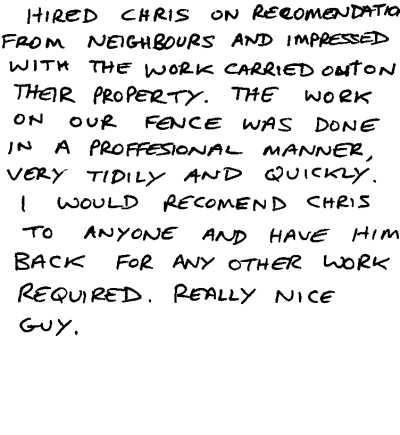 HIRED CHRIS ON RECOMENDATIO
FROM NEIGHBOURS AND IMPRESSED
WITH THE WORK CARRIED OUTON
THEIR PROPERTY. THE WORK
ON OUR FENCE WAS DONE
IN A PROFFESIONAL MANNER,
VERY TIDILY AND QUICKLY.
I WOULD RECOMEND CHRIS
TO ANYONE AND HAVE HIM
BACK FOR ANY OTHER WORK
REQUIRED. REALLY NICE
GUY.